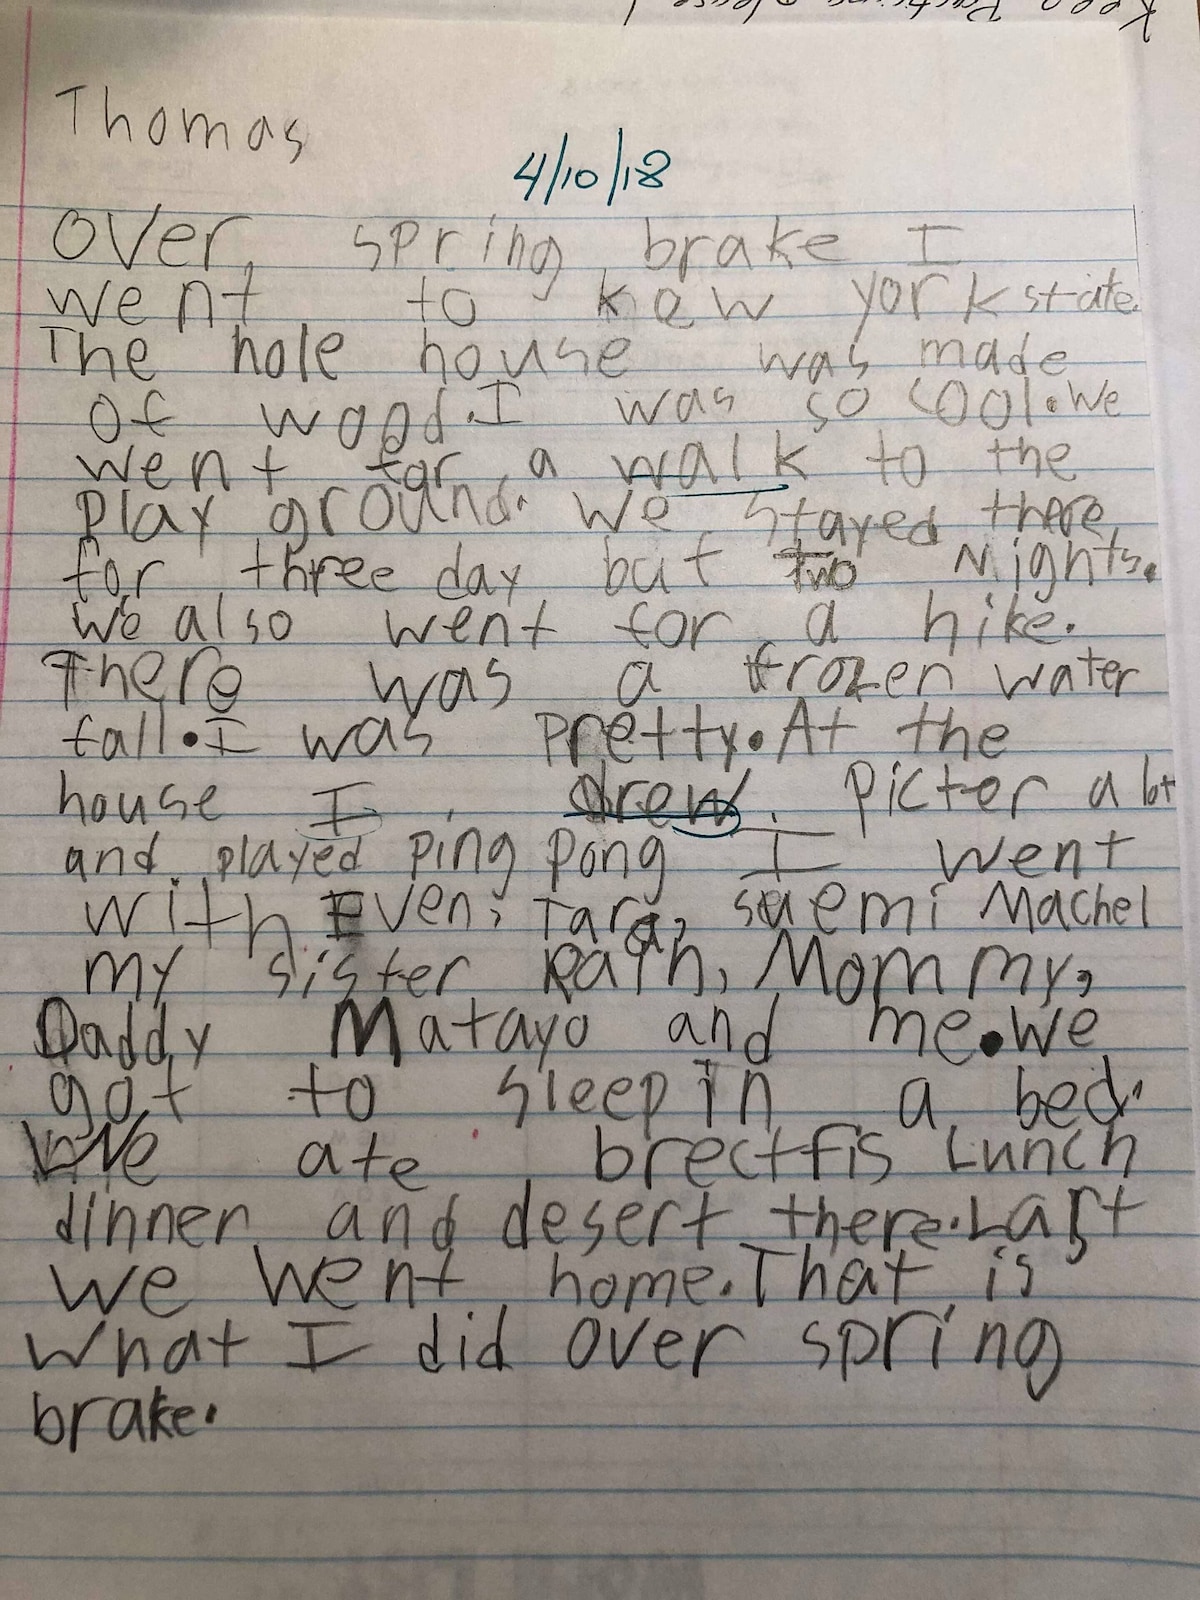 Keep Practicing please!
Thomas
4/10/18
Over, spring brake I
went to New york state.
The hole house was made
of wood. I was so cool. We
went for a walk to the
play ground. We stayed there
for three day but two Nights.
We also went for a hike.
There was a frozen water
fall. I was pretty. At the
house I drew picter a lot
and played ping pong I went
with Even, Tara, Machel
my sister Mommy,
Daddy Matayo and me. We
got to sleep in a bed.
We ate brectfis Lunch
dinner and desert there. Last
we went home. That is
what I did over spring
brake.